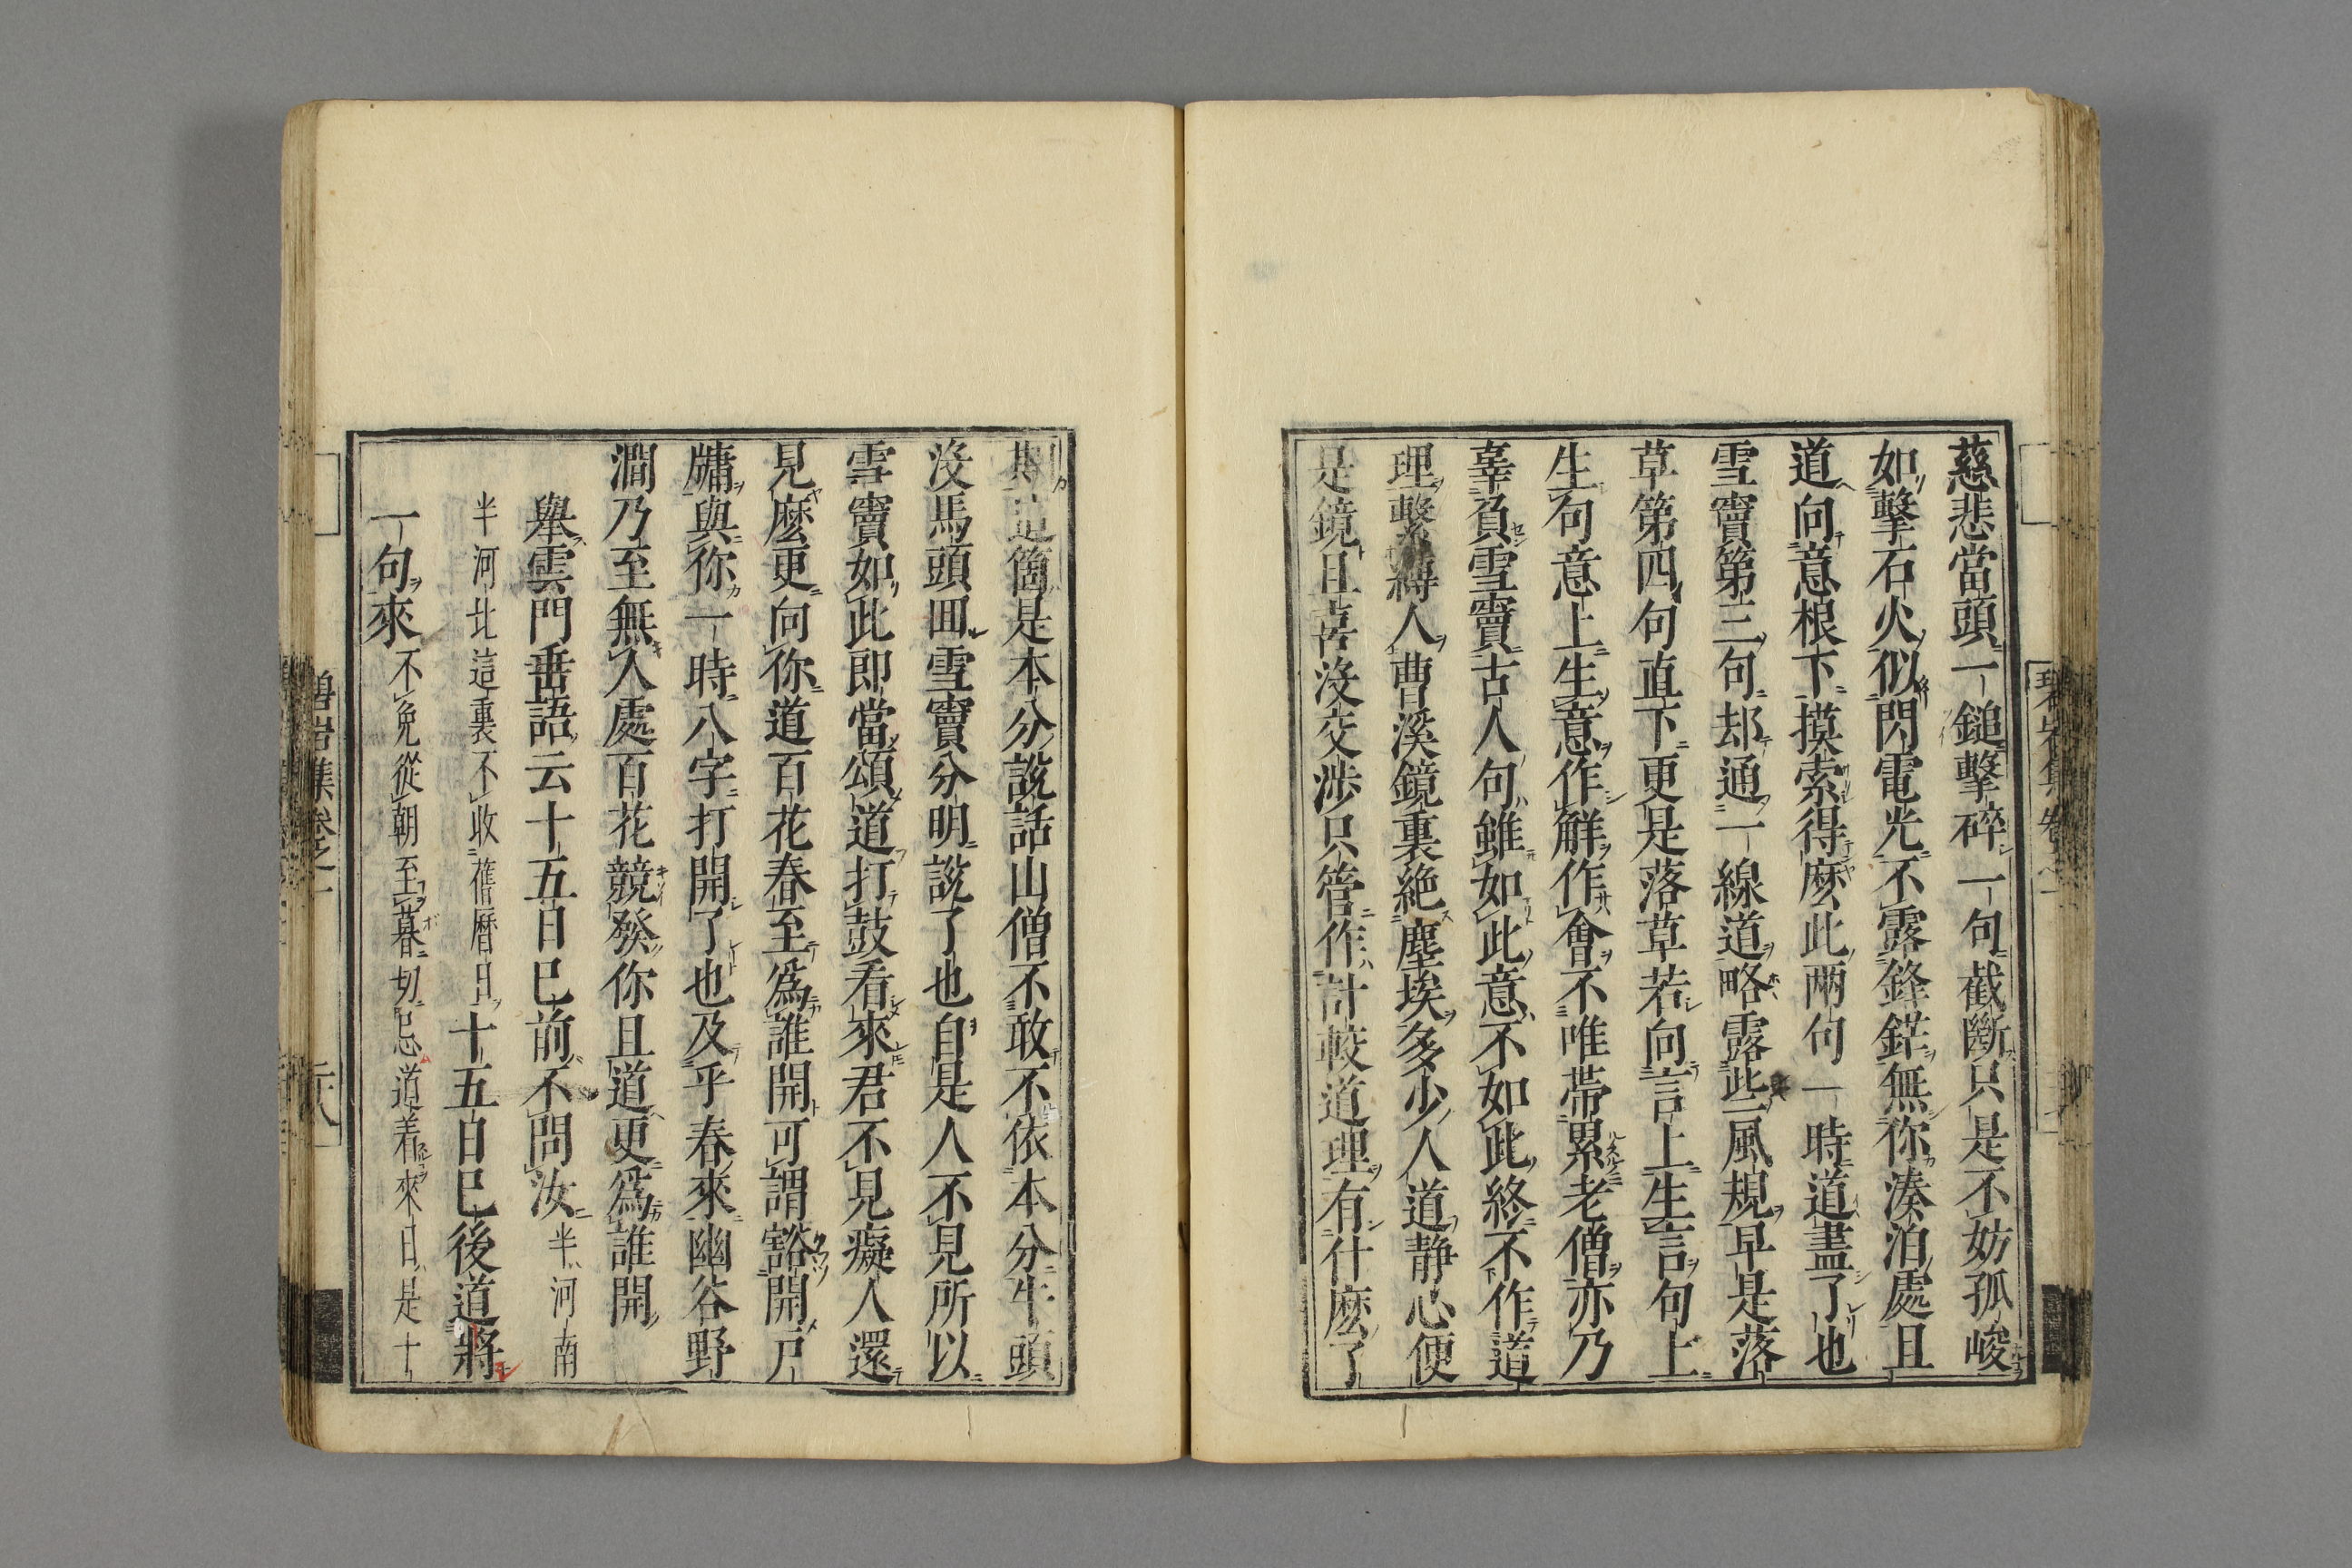 慈悲當頭一鎚擊碎一句截斷只是不妨孤峻
如擊石火似閃電光不露鋒鋩無你湊泊處且
道向意根下摸索得麽此兩句一時道盡了也
雪竇第三句却通一線道略露些風規早是落
草第四句直下更是落草若向言上生言句上
生句意上生意作解作會不唯帶累老僧亦乃
辜負雪竇古人句雖如此意不如此終不作道
理繫縛人曹溪鏡裏絶塵埃多少人道靜心便
是鏡且喜沒交渉只管作計較道理有什麽了
期這箇是本分說話山僧不敢不依本分牛頭
沒馬頭囬雪竇分明說了也自是人不見所以
雪竇如此即當頌道打鼓看來君不見癡人還
見麽更向你道百花春至爲誰開可謂豁開戸
牖與你一時八字打開了也及乎春來幽谷野
澗乃至無人處百花競發你且道更爲誰開
舉雲門垂語云十五日已前不問汝半河南
半河北這裏不收舊曆日十五日已後道將
一句來不免從朝至暮切忌道着來日是十
碧岩集卷之一